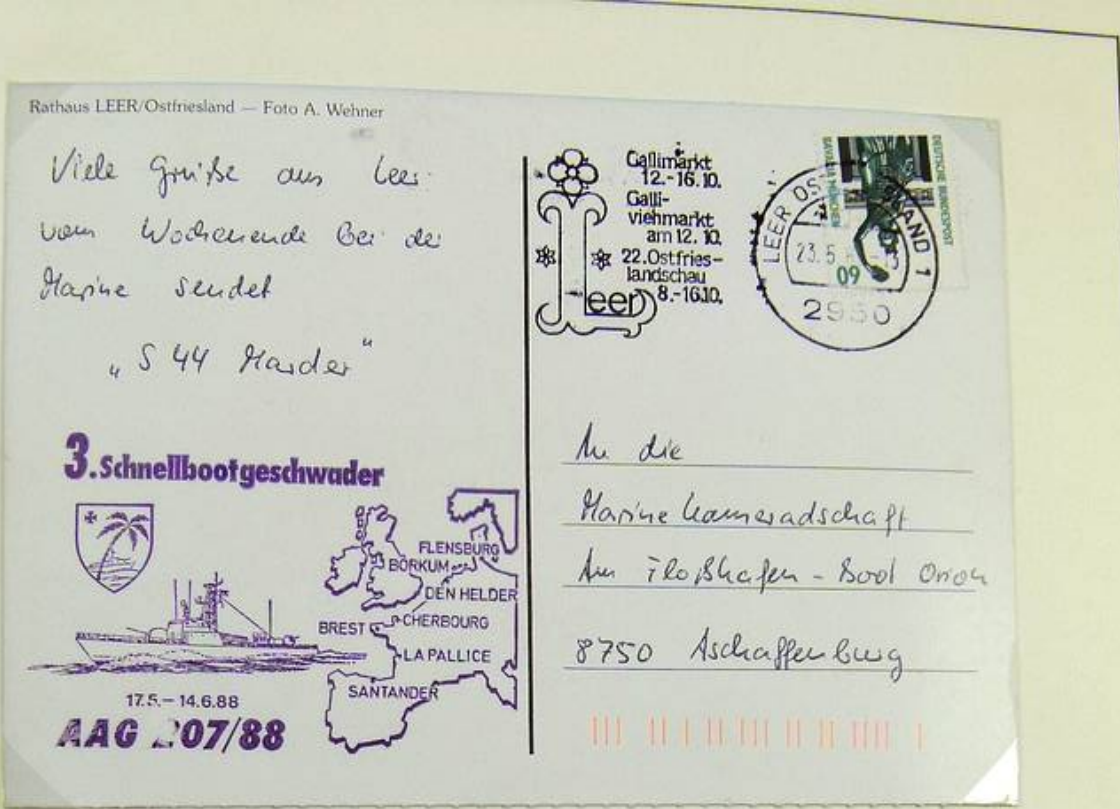 Rathaus LEER/Ostfriesland — Foto A. Wehner
Viele Grüße aus Leer
vom Wochenende bei der
Marine sendet
„S 44 Marder"
3. Schnellbootgeschwader
FLENSBURG
BORKUM
DEN HELDER
CHERBOURG
BREST
LA PALLICE
SANTANDER
17.5.– 14.6.88
AAG 207/88
Gallimarkt
12.-16.10.
Galli-
viehmarkt
am 12. 10.
22.Ostfries-
landschau
8.-16.10.
Leer
DEUTSCHE BUNDESPOST
BAVARIA MÜNCHEN
60
LEER OSTFRIESLAND 1
23.5.
2950
An die
Marinekameradschaft
Am Floßhafen - Boot Orion
8750 Aschaffenburg